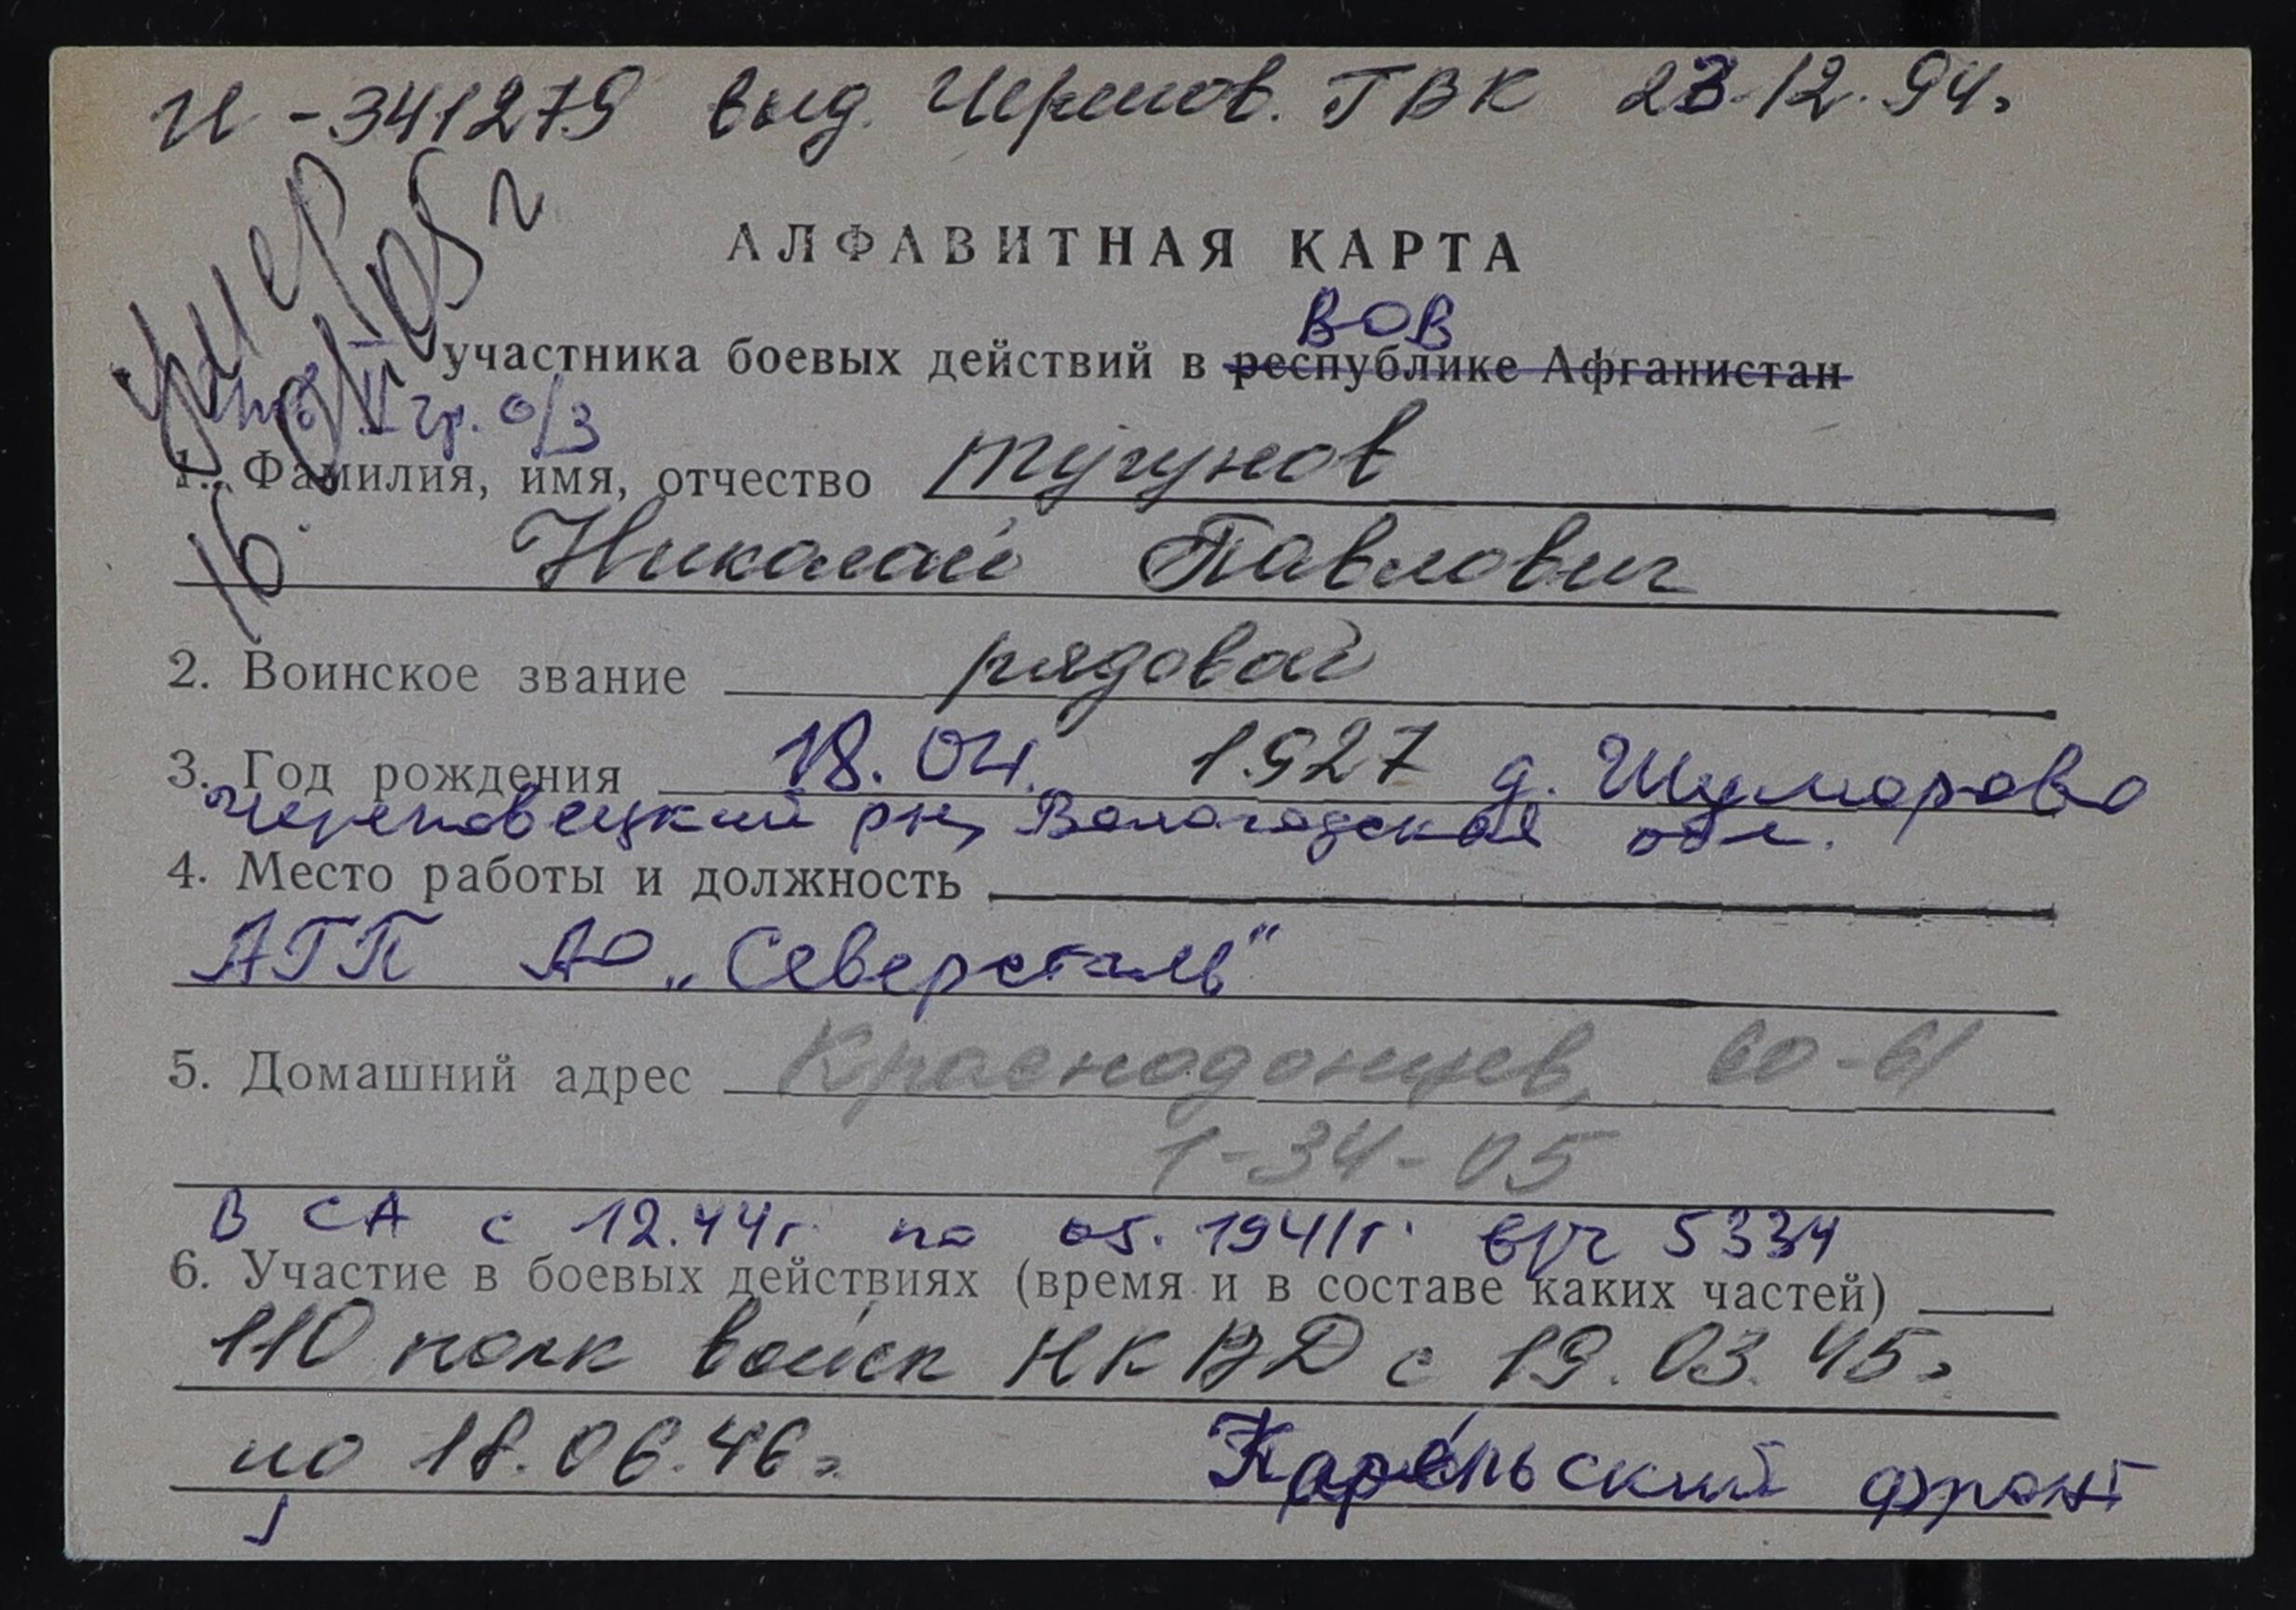 И-341279 выд. Черепов. ГВК 23.12.94г
АЛФАВИТНАЯ КАРТА
ВОВ
участника боевых действий в республике Афганистан
умер
16.
гр. о/з
1. Фамилия, имя, отчество Тугунов
Николай Павлович
2. Воинское звание рядовой
3. Год рождения 18.04. 1927 д. Шуморово
Череповецкий рн, Вологодская обл.
4. Место работы и должность
АГП АО „Северсталь"
5. Домашний адрес Краснодонцев, 60-61
1-34-05
В СА с 12.44г. по 05. 1941г. в/ч 5334
6. Участие в боевых действиях (время и в составе каких частей)
110 полк войск НКВД с 19.03.45г
по 18.06.46г Карельский фронт